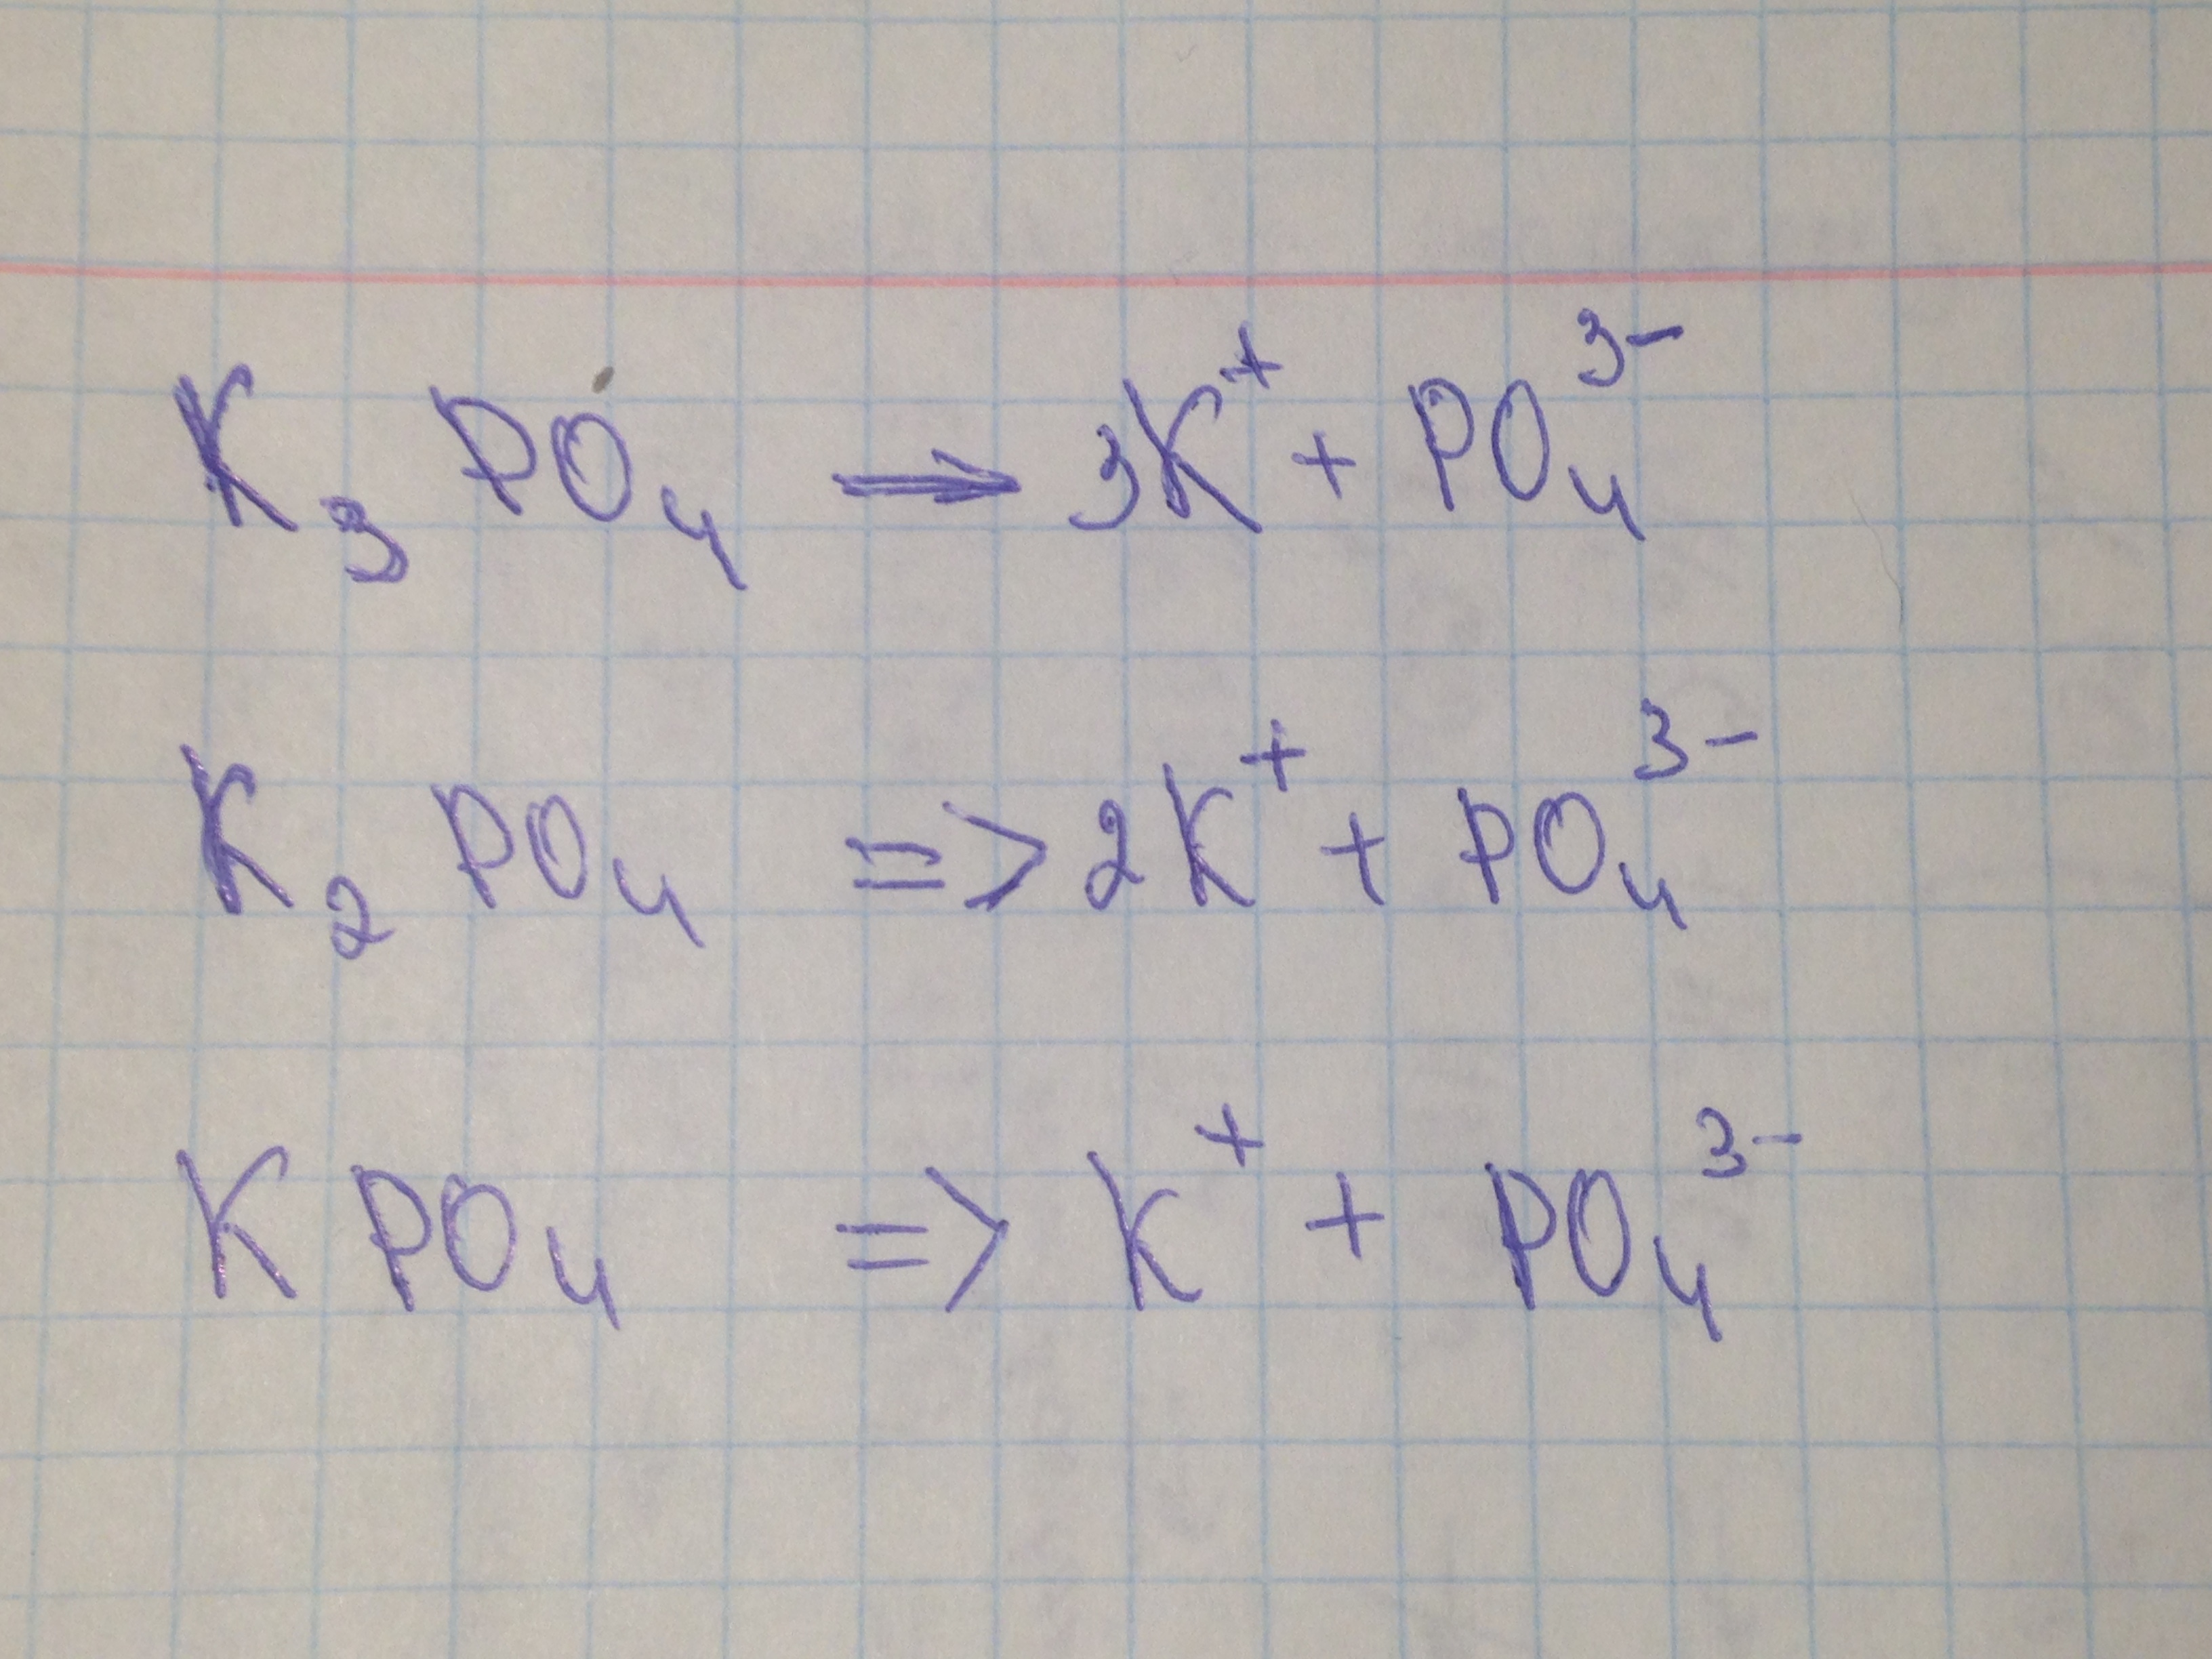 K₃PO₄ → 3K⁺ + PO₄³⁻
K₂PO₄ => 2K⁺ + PO₄³⁻
KPO₄ => K⁺ + PO₄³⁻